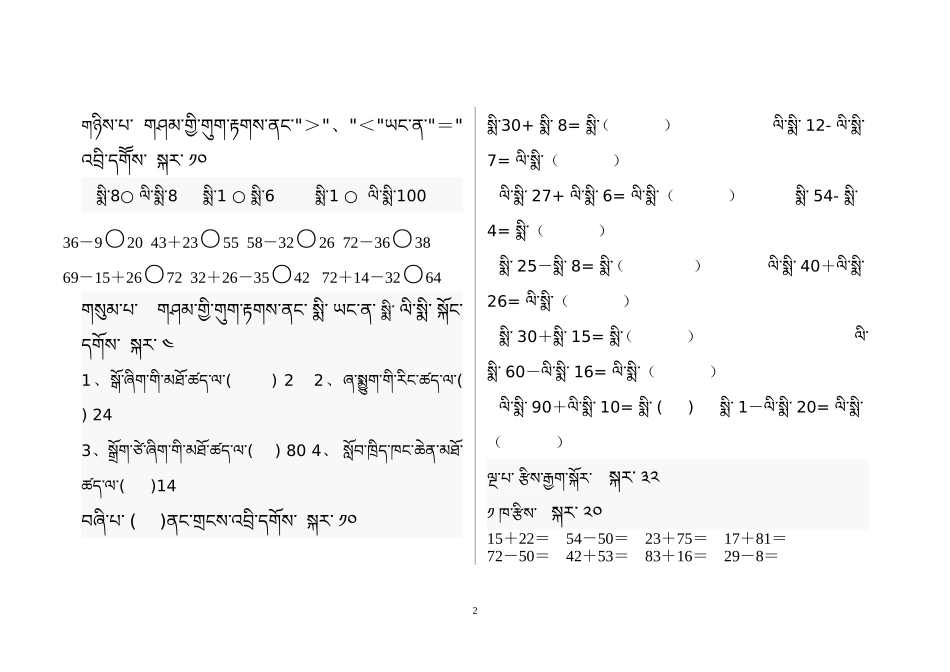 གཉིས་པ་ གཤམ་གྱི་གུག་རྟགས་ནང་"＞"、"＜"ཡང་ན་"＝"
འབྲི་དགོོས་ སྐར་ ༡༠
སྨི་8○ ལི་སྨི་8 སྨི་1 ○ སྨི་6 སྨི་1 ○ ལི་སྨི་100
36－9○20 43＋23○55 58－32○26 72－36○38
69－15＋26○72 32＋26－35○42 72＋14－32○64
གསུམ་པ་ གཤམ་གྱི་གུག་རྟགས་ནང་ སྨི་ ཡང་ན་ སྨི་ ལི་སྨི་ སྐོང་
དགོས་ སྐར་ ༤
1、སྒོ་ཞིག་གི་མཐོ་ཚད་ལ་( ) 2 2、ཞ་སྨྱུག་གི་རིང་ཚད་ལ་(
) 24
3、སྒྲོག་ཙེ་ཞིག་གི་མཐོ་ཚད་ལ་( ) 80 4、 སློབ་ཁྲིད་ཁང་ཆེན་མཐོ་
ཚད་ལ་( )14
བཞི་པ་ ( )ནང་གྲངས་འབྲི་དགོས་ སྐར་ ༡༠
སྨི་30+ སྨི་ 8= སྨི་（ ） ལི་སྨི་ 12- ལི་སྨི་
7= ལི་སྨི་（ ）
ལི་སྨི་ 27+ ལི་སྨི་ 6= ལི་སྨི་（ ） སྨི་ 54- སྨི་
4= སྨི་（ ）
སྨི་ 25－སྨི་ 8= སྨི་（ ） ལི་སྨི་ 40＋ལི་སྨི་
26= ལི་སྨི་（ ）
སྨི་ 30＋སྨི་ 15= སྨི་（ ） ལི་
སྨི་ 60－ལི་སྨི་ 16= ལི་སྨི་（ ）
ལི་སྨི་ 90＋ལི་སྨི་ 10= སྨི་ ( ) སྨི་ 1－ལི་སྨི་ 20= ལི་སྨི་
（ ）
ལྔ་པ་ རྩིས་རྒྱག་སྐོར་ སྐར་ ༣༢
༡ ཁ་རྩིས་ སྐར་ ༢༠
15＋22＝ 54－50＝ 23＋75＝ 17＋81＝
72－50＝ 42＋53＝ 83＋16＝ 29－8＝
2